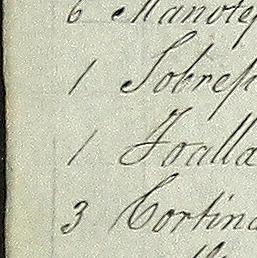 6 Manote
1 Sobre
1 Toalla
3 Cortina